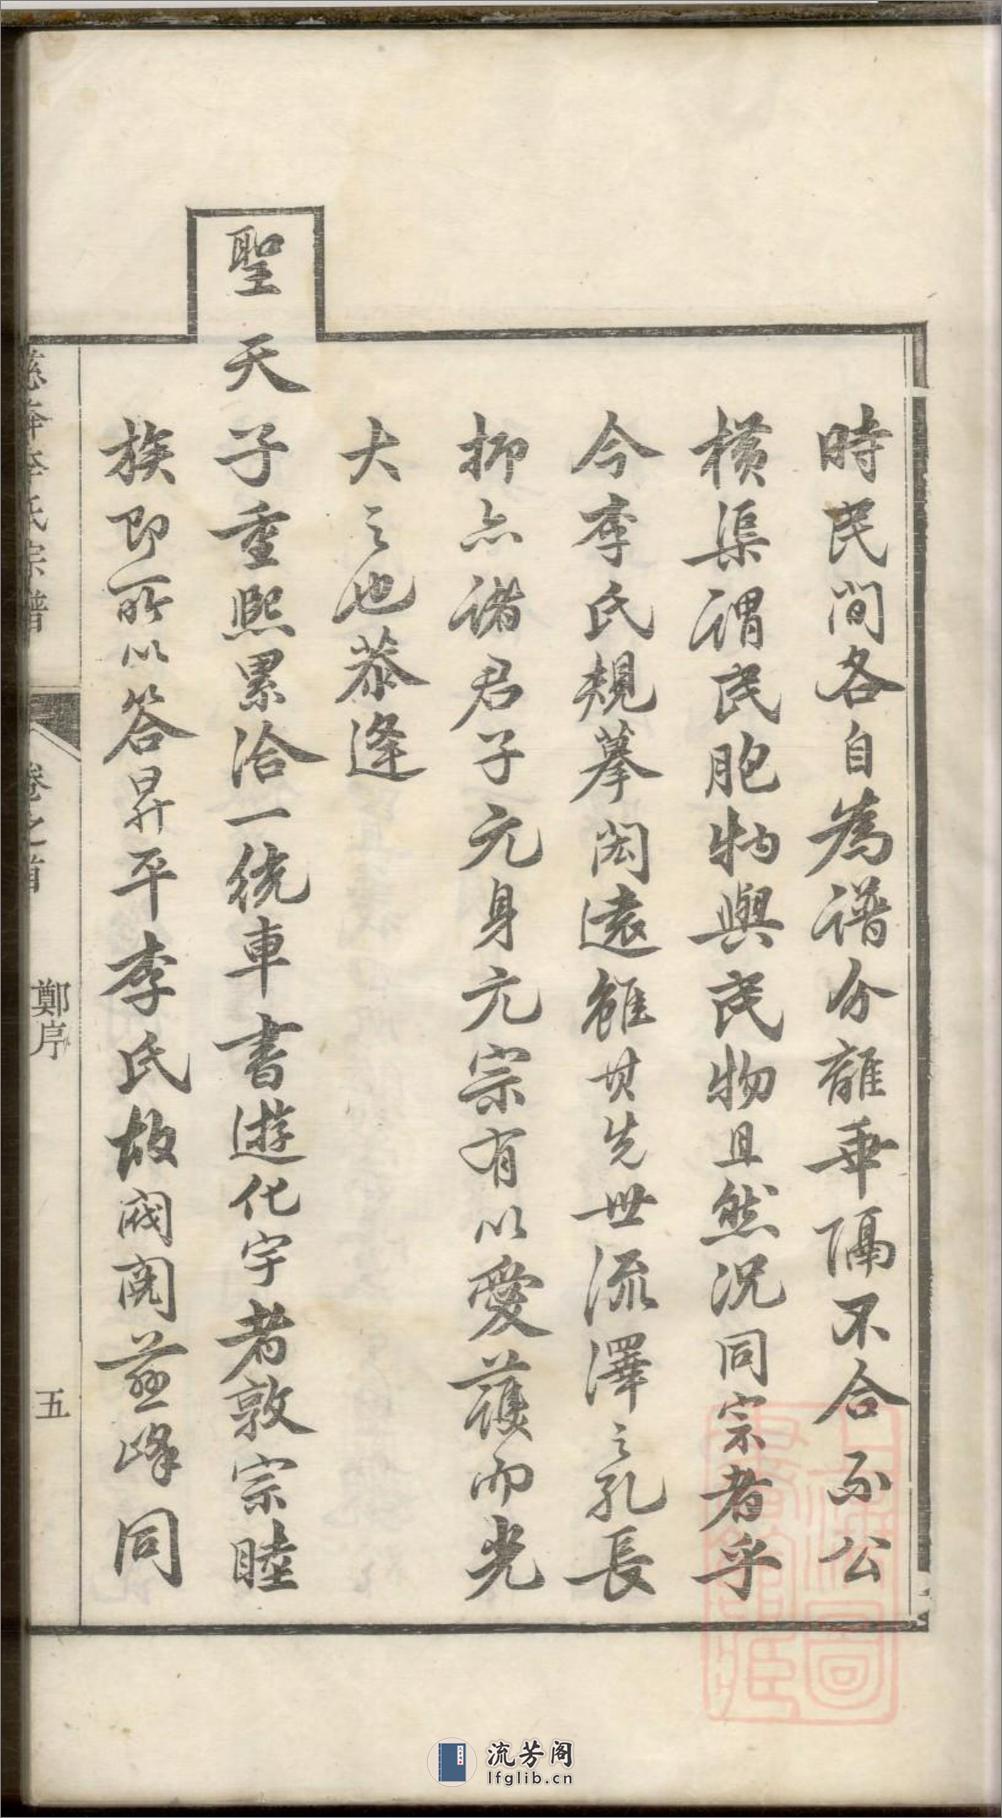 時民間各自為譜分離乖隔不合不公
橫渠謂民胞物與民物且然況同宗者乎
今李氏規摹闳遠雖其先世流澤之孔長
抑亦諸君子亢身亢宗有以愛護而光
大之也恭逢
聖天子重熙累洽一統車書遊化宇者敦宗睦
族即所以答昇平李氏故閥閱並峰同
李氏宗譜
卷之首
鄭序
五
流芳阁
lfglib.cn